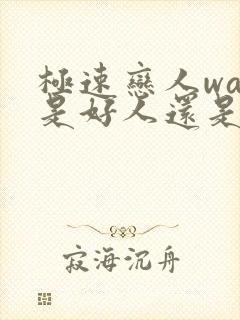 極速戀人wa
是好人還是
寂海沉舟